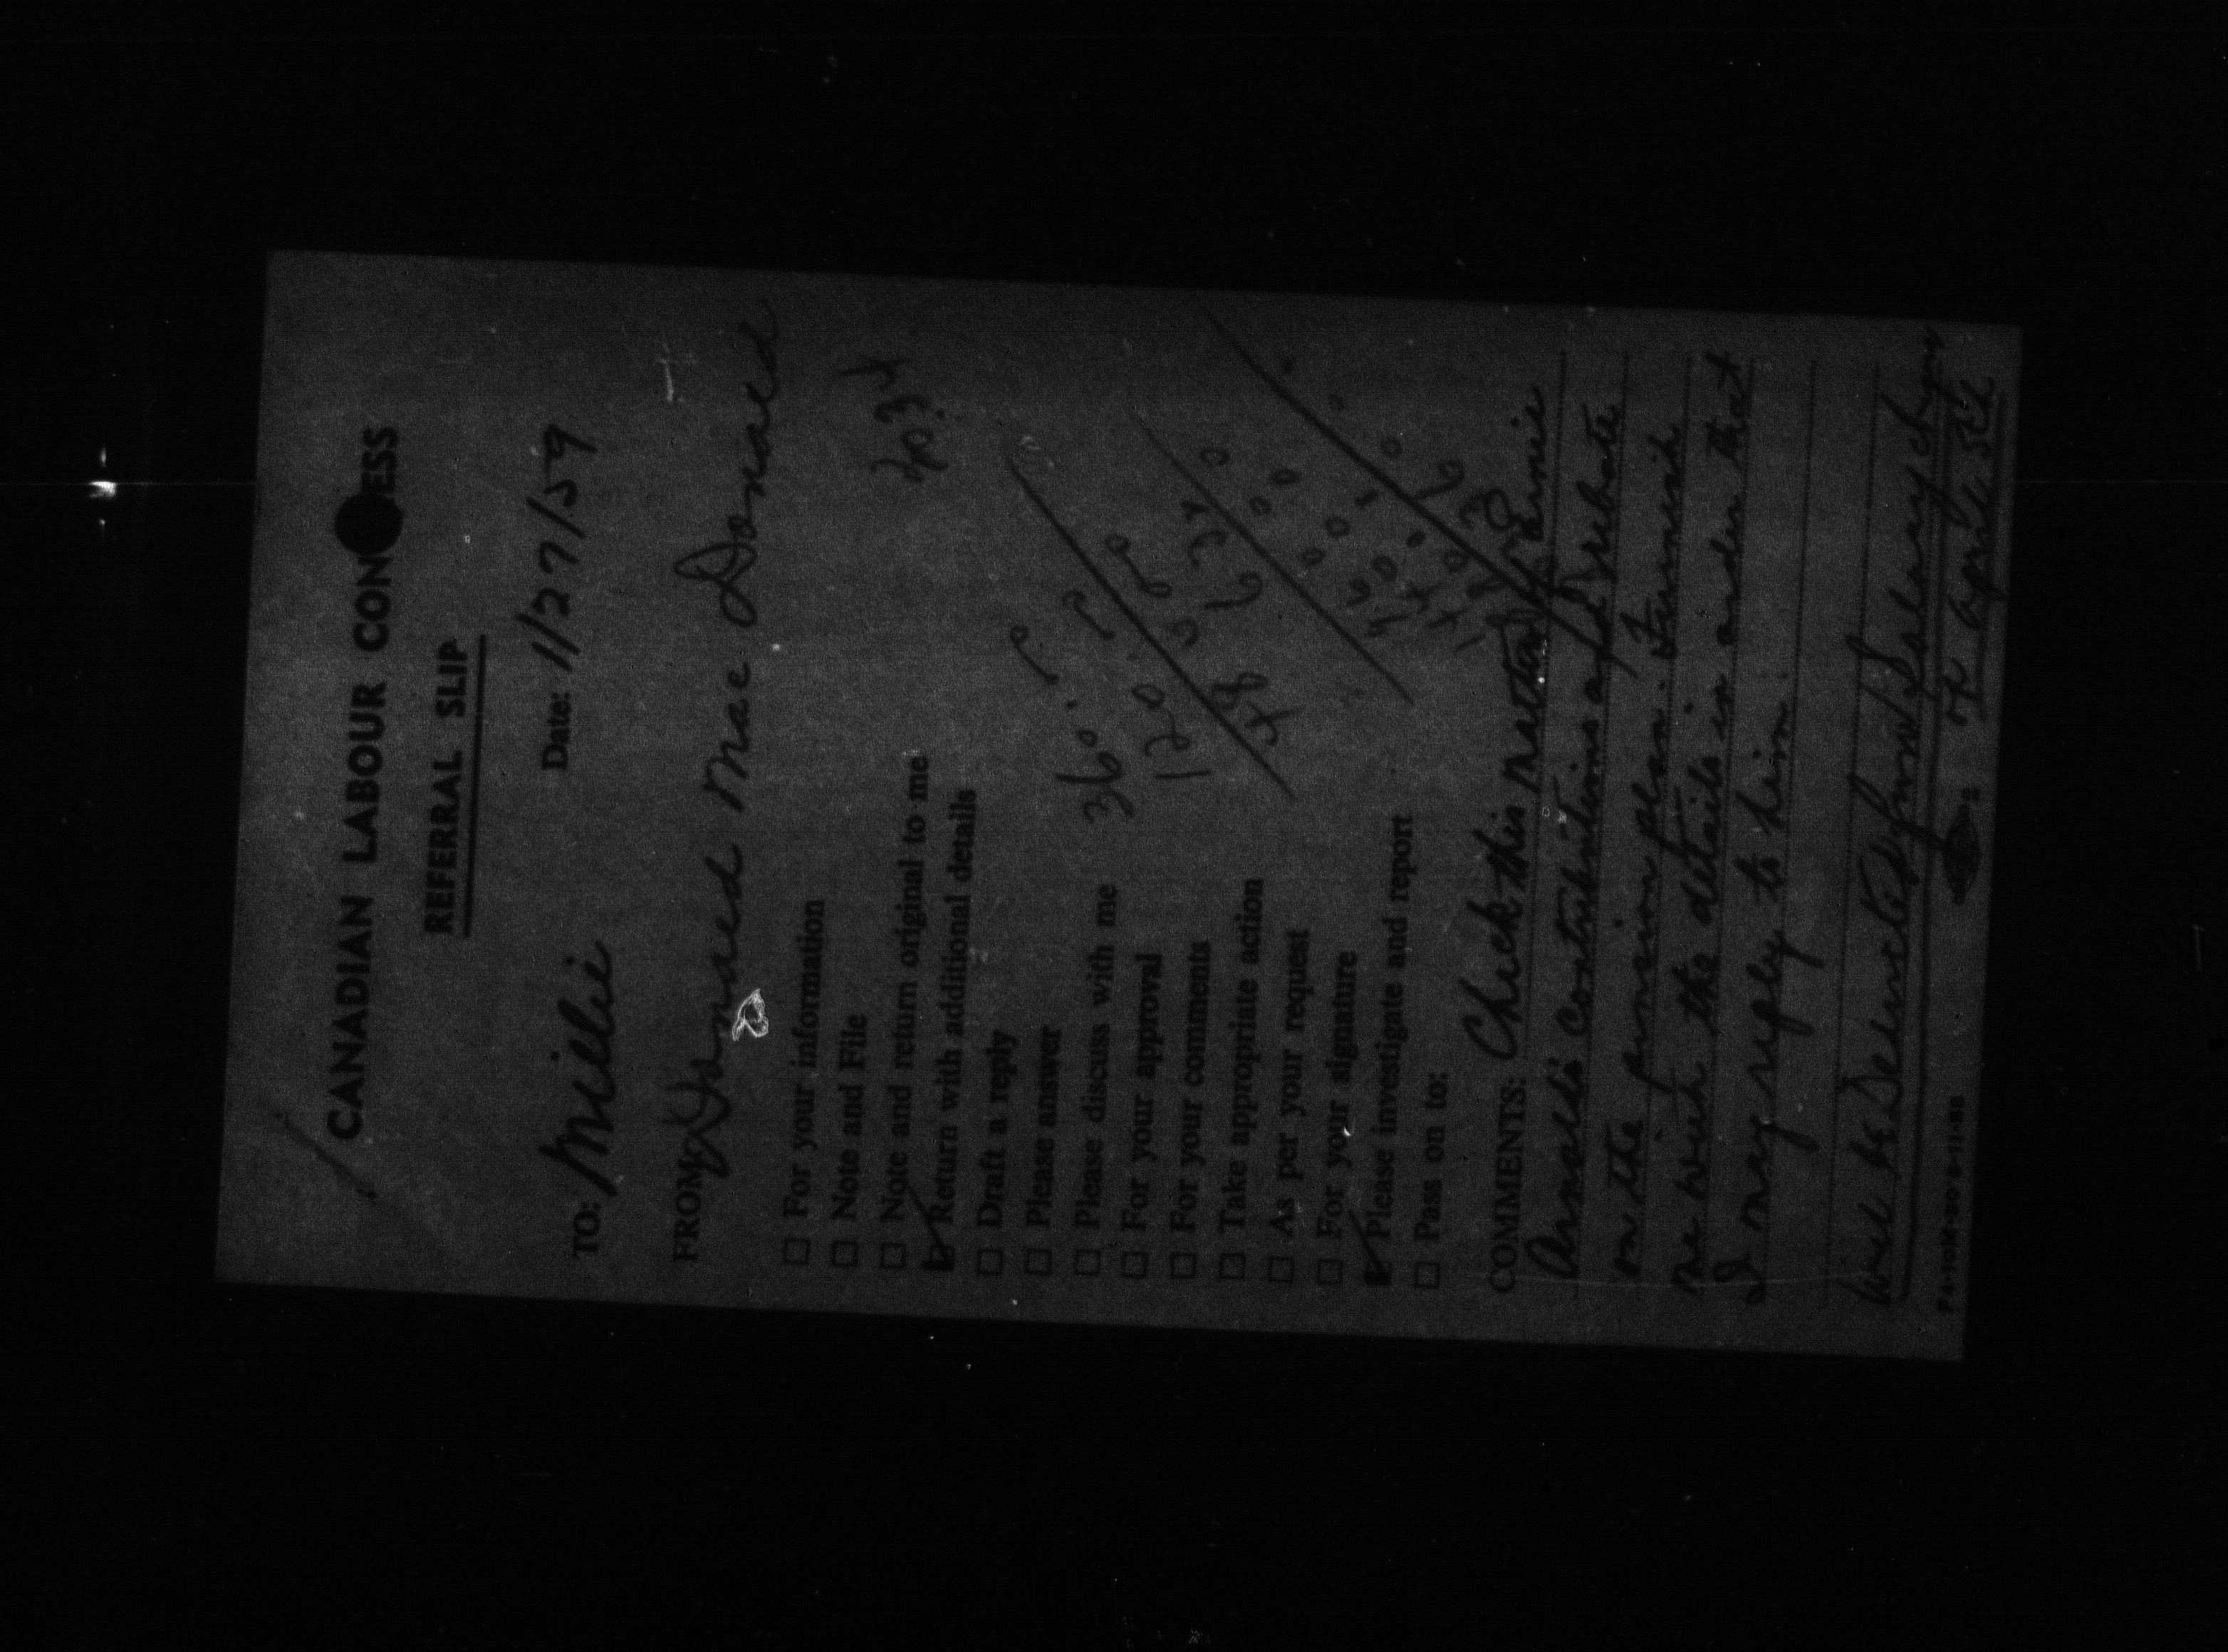 CANADIAN LABOUR CON ESS
REFERRAL SLIP
Date: 1/27/59
TO: Millie
FROM: Donald Mac Donald
☐ For your information
☐ Note and File
☐ Note and return original to me
☑ Return with additional details
☐ Draft a reply
☐ Please answer
☐ Please discuss with me
☐ For your approval
☐ For your comments
☐ Take appropriate action
☐ As per your request
☐ For your signature
☑ Please investigate and report
☐ Pass on to:
COMMENTS: Check this matter of Ernie
Arnold's contributions and rebate
on the pension plan. Furnish
me with the details in order that
I may reply to him.
Will be Deducted from Salary chque
of April 5th